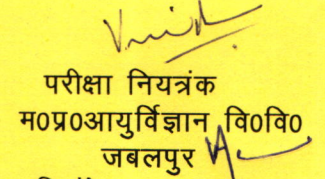 परीक्षा नियत्रंक
म0प्र0आयुर्विज्ञान वि0वि0
जबलपुर